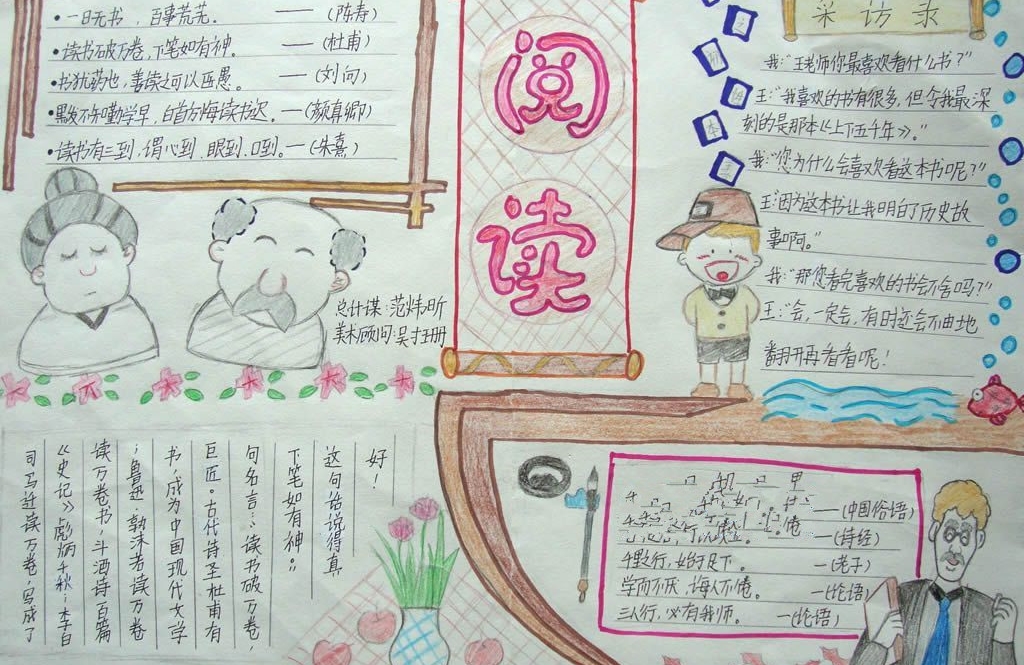 • 一日无书，百事荒芜。——(陈寿)
• 读书破万卷，下笔如有神。——(杜甫)
• 书犹药也，善读之可以医愚。——(刘向)
• 黑发不知勤学早，白首方悔读书迟。—(颜真卿)
• 读书有三到，谓心到、眼到、口到。—(朱熹)
总计谋:范炜昕
美术顾问:吴
阅
读
采访录
我:“王老师你最喜欢看什么书？”
王:“我喜欢的书有很多，但令我最深
刻的是那本《上下五千年》。”
我:“您为什么会喜欢看这本书呢？”
王:“因为这本书让我明白了历史故
事啊。”
我:“那您看完喜欢的书会不舍吗？”
王:“会，一定会，有时还会不由地
翻开再看看呢！
司马迁读万卷，写成了
《史记》彪炳千秋；李白
读万卷书，斗酒诗百篇
；鲁迅.郭沫若读万卷
书，成为中国现代文学
巨匠。古代诗圣杜甫有
句名言：“读书破万卷，
下笔如有神。”
这句话说得真
好！
—(中国俗语)
—(诗经)
行，始于足下。 —(老子)
学而不厌，诲人不倦。 —(论语)
三人行，必有我师。 —(论语)